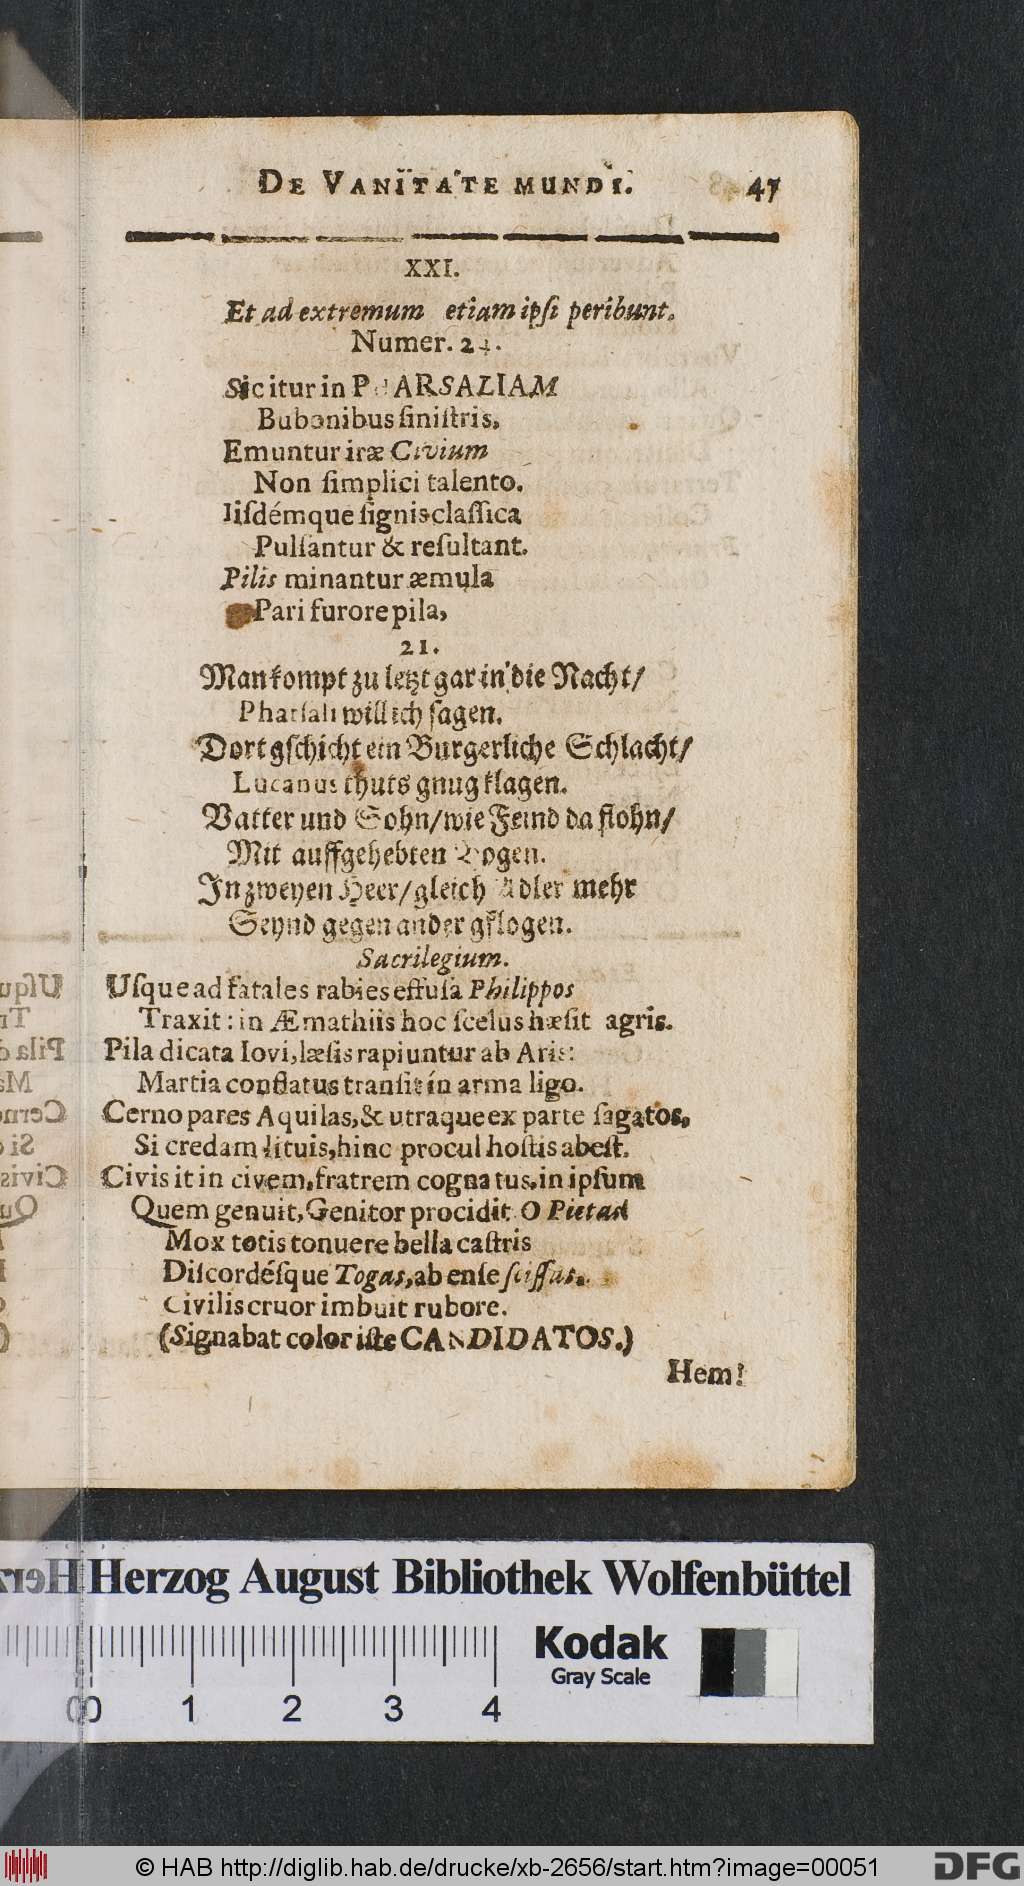 DE VANITATE MUNDI. 47
XXI.
Et ad extremum etiam ipſi peribunt.
Numer. 24.
Sic itur in PHARSALIAM
Bubonibus ſiniſtris,
Emuntur iræ Civium
Non ſimplici talento.
Iiſdémque ſignis claſſica
Pulſantur & reſultant.
Pilis minantur æmula
Pari furore pila,
21.
Man kompt zu letzt gar in die Nacht/
Pharſali will ich ſagen.
Dort gſchicht ein Burgerliche Schlacht/
Lucanus thuts gnug klagen.
Vatter und Sohn/wie Feind da flohn/
Mit auffgehebten Bogen.
In zweyen Heer/gleich Adler mehr
Seynd gegen ander gflogen.
Sacrilegium.
Uſque ad fatales rabies effuſa Philippos
Traxit: in Æmathiis hoc ſcelus hæſit agris.
Pila dicata Iovi, læſis rapiuntur ab Aris:
Martia conflatus tranſit in arma ligo.
Cerno pares Aquilas, & utraque ex parte ſagatos,
Si credam lituis, hinc procul hoſtis abeſt.
Civis it in civem, fratrem cognatus, in ipſum
Quem genuit, Genitor procidit. O Pietas!
Mox totis tonuere bella caſtris
Diſcordéſque Togas, ab enſe ſciſſas.
Civilis cruor imbuit rubore.
(Signabat color iſte CANDIDATOS.)
Hem!
Herzog August Bibliothek Wolfenbüttel
Kodak
Gray Scale
0 1 2 3 4
© HAB http://diglib.hab.de/drucke/xb-2656/start.htm?image=00051
DFG